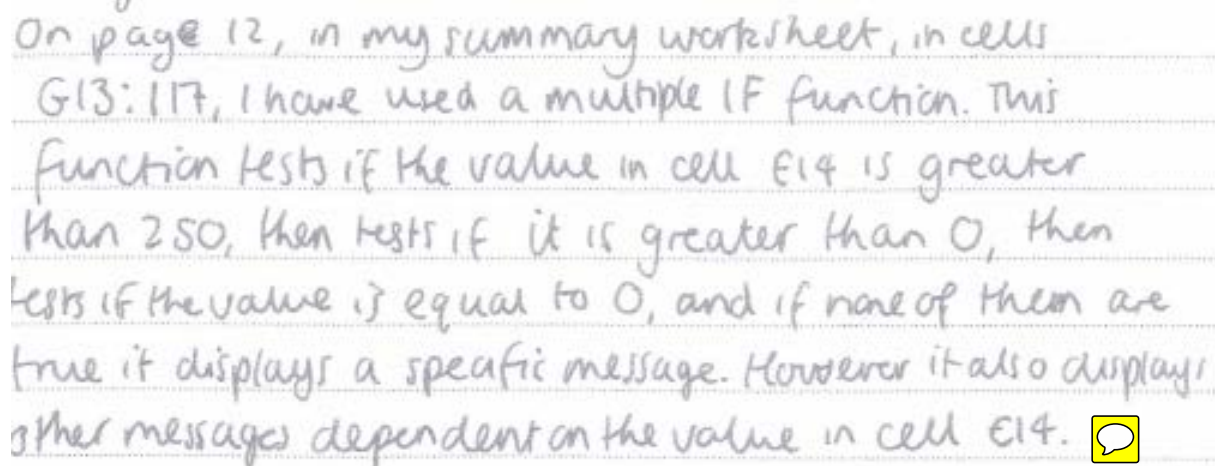 On page 12, in my summary worksheet, in cells
G13:I17, I have used a multiple IF function. This
function tests if the value in cell E14 is greater
than 250, then tests if it is greater than 0, then
tests if the value is equal to 0, and if none of them are
true it displays a specific message. However it also displays
other messages dependent on the value in cell E14.